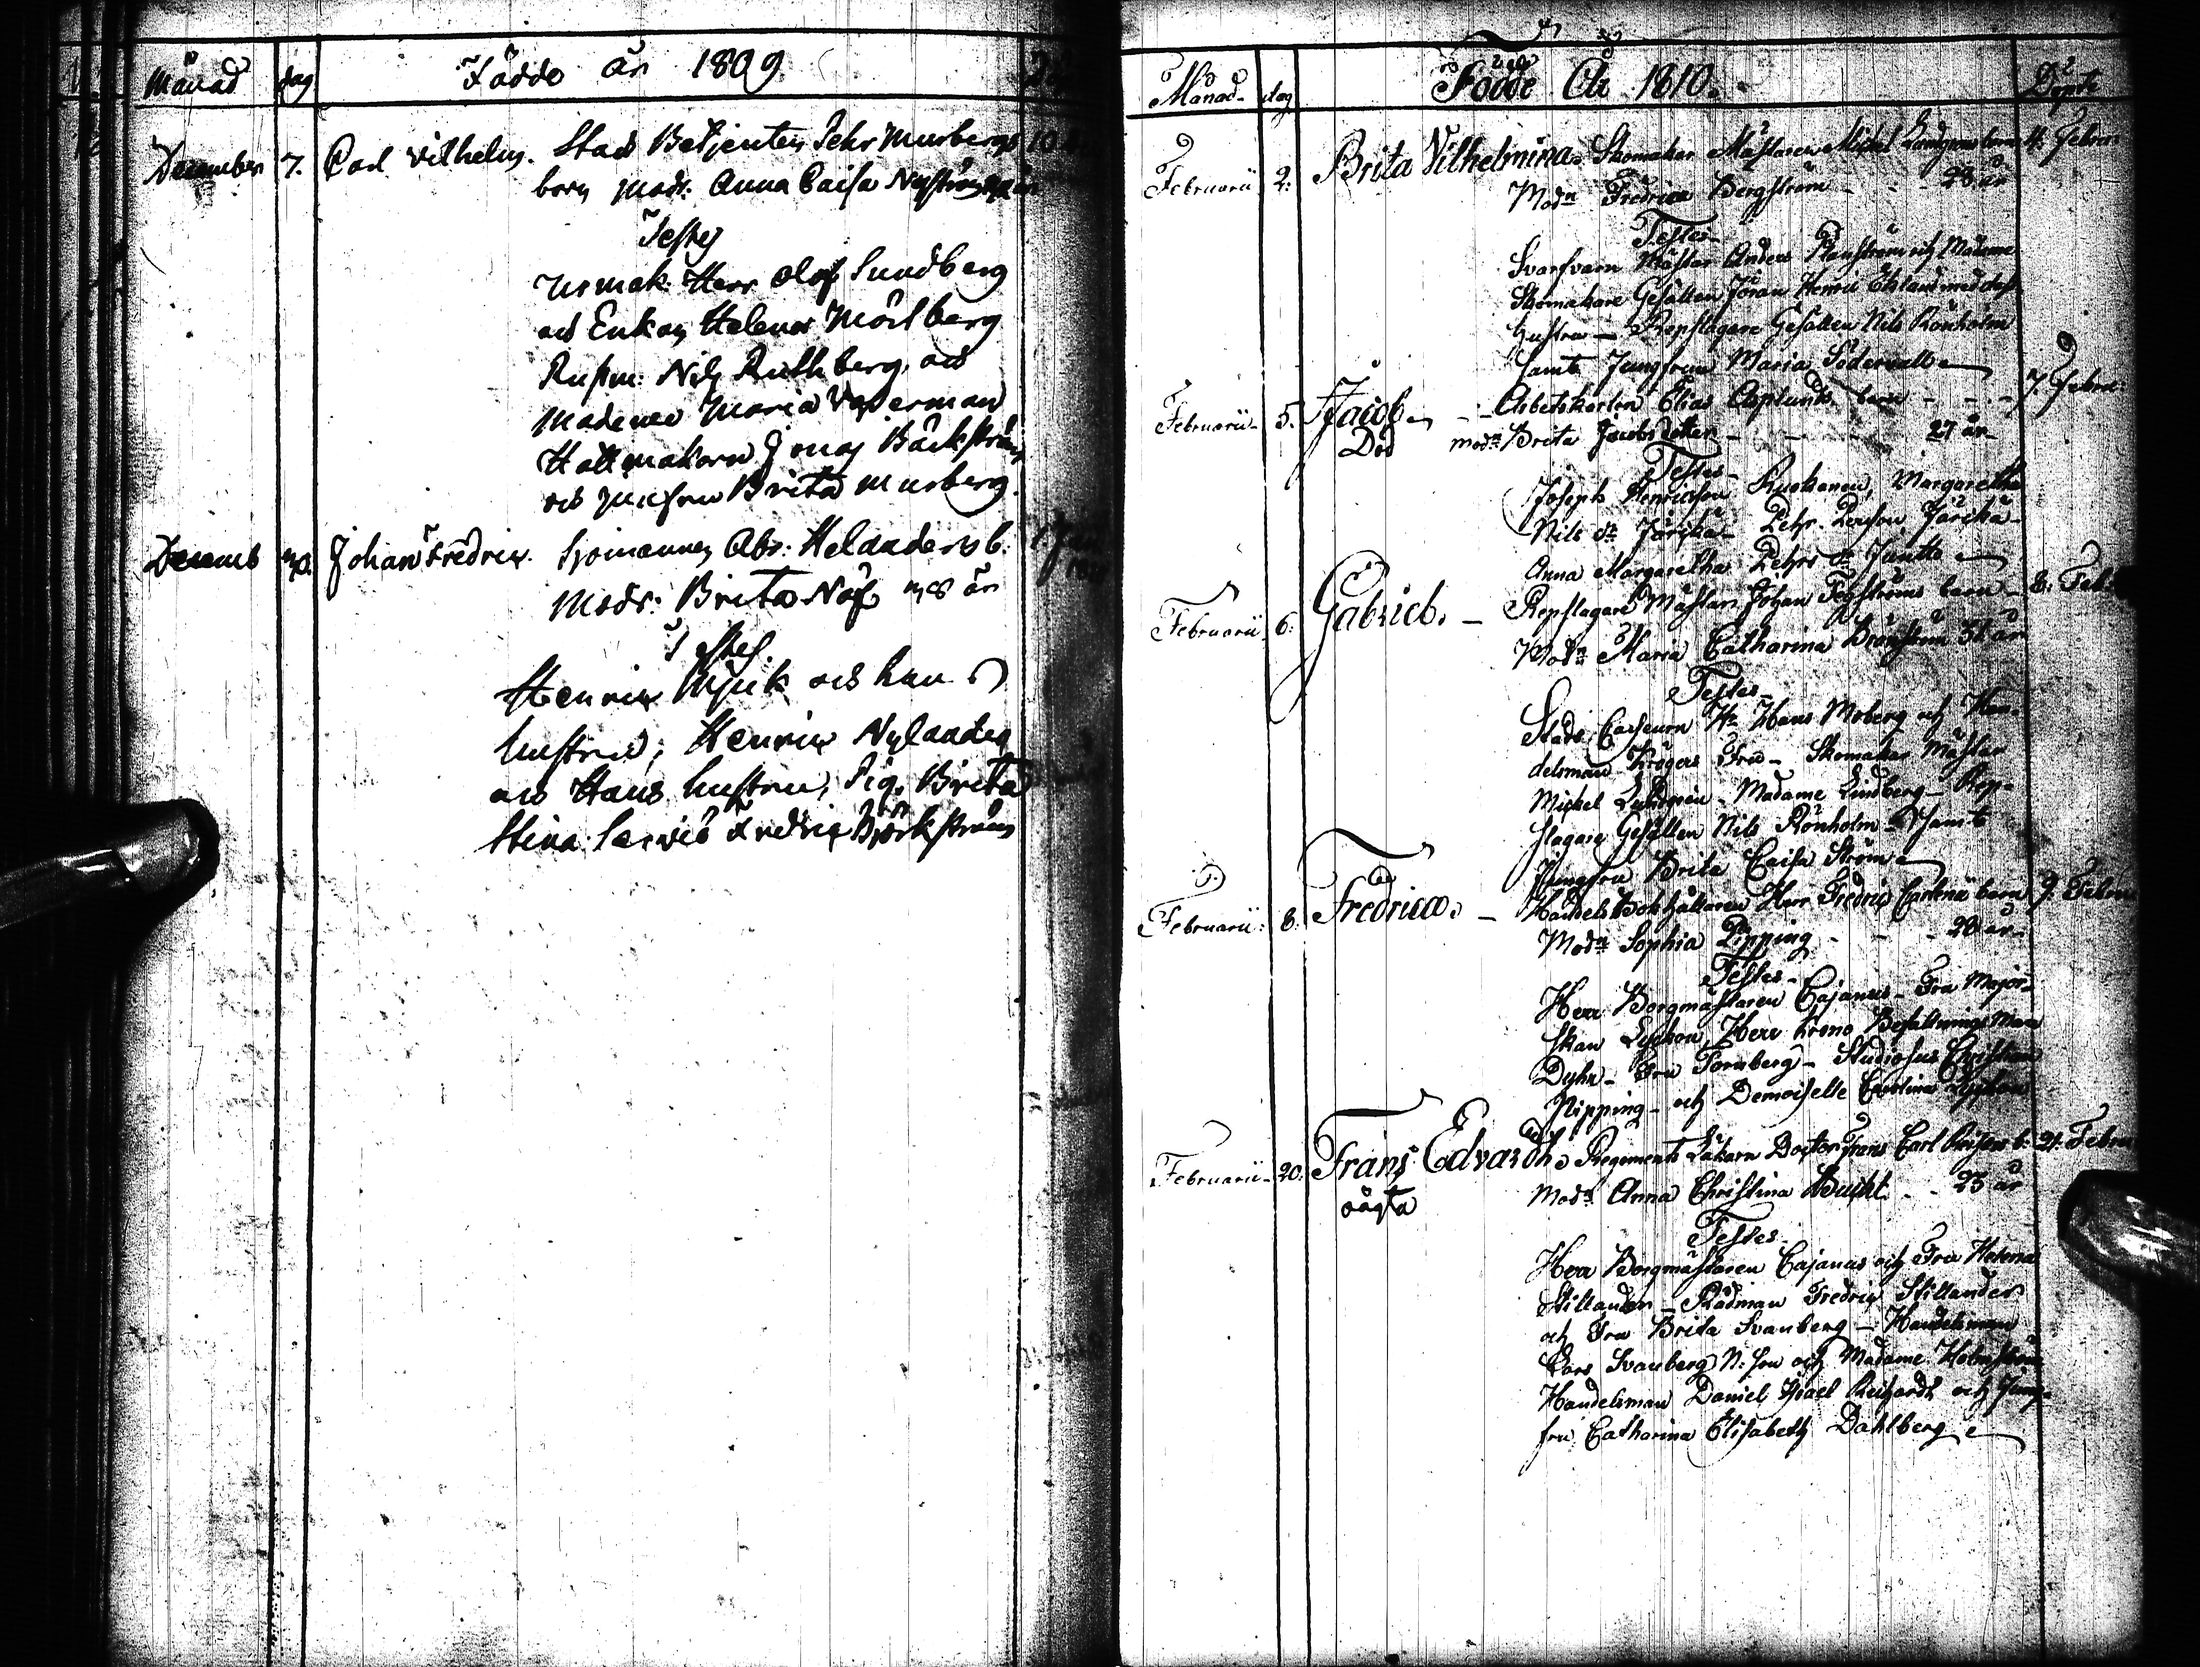 Månad dag Födde år 1809
December 7. Carl Vilhelm. Stads Betjenten Pehr Murbergs 10
barn mod: Anna Caisa Nyström
Testes
Urmak: Herr Olof Sundberg
och Enkan Helena Mörtberg
Rustm: Nils Ruthberg och
Madame Maria
Hattmakaren Jonas Bäckström
och Jungfru Brita Murberg.
Decemb 30. Johan Fredric. Sjömannen Abr: Helanders b. 1. Jan
Modr: Brita Näf 28 år
Testes.
Henric och hans
hustru; Henric Nylander
och Hans hustru, Pig. Brita
Stina Fredric Björkström
Månad dag Födde År 1810. Döpte
Februarii 2. Brita Vilhelmina. Skomakar Mästaren Michel barn 4. Febru
Modn Fredrica Bergström - - - 28 år
Testes
Svarfvare Mästar Anders och Madame
Skomakare Gesällen Jöran Henric med dess
hustru - Repslagare Gesällen Nils Rönholm
samt Jungfrun Maria Södervall
Februarii 5. Jacob - - Arbetskarlen Elias Asplunds barn - - - 7. Febru
Död modn Brita Jacobs dotter - - - 27 år
Testes
Joseph Henricsson Margaretha
Nils dr Järikä - Pehr Persson Järikä
Anna Margaretha Pehrs dr
Februarii 6. Gabriel. - Repslagare Mästar Johan barn - 8. Feb
Modn Maria Catharina Brännström 31 år
Testes
Stads Cassören Hr Hans Moberg och Han-
delsman Krögers Fru - Skomakar Mästar
Michel - Madame Lindberg - Rep-
slagare Gesällen Nils Rönholm samt
Jungfru Brita Caisa Ström
Februarii 8. Fredrica. - Handels Bokhållaren Herr Fredric barn 9. Febru
Modn Sophia Pipping - - - 20 år
Testes
Herr Borgmästaren Cajanus - Fru Major-
skan Herr Krono Befallnings Man
Dyhr - Fru Tornberg - Studiosus Christian
Pipping - och Demoiselle Carolina
Februarii - 20. Frans Edvardh. Regements Läkaren Doctor Frans Carl b. 21. Febru
oägta Modn Anna Christina Bucht - - 25 år
Testes
Herr Borgmästaren Cajanus och Fru Helena
Stillander - Rådman Fredric Stillander
och Fru Brita Svanberg - Handelsman
Lars Svanberg N. fru och Madame Holmström
Handelsman Daniel Isael Reichardt och Jung-
fru Catharina Elisabeth Dahlberg